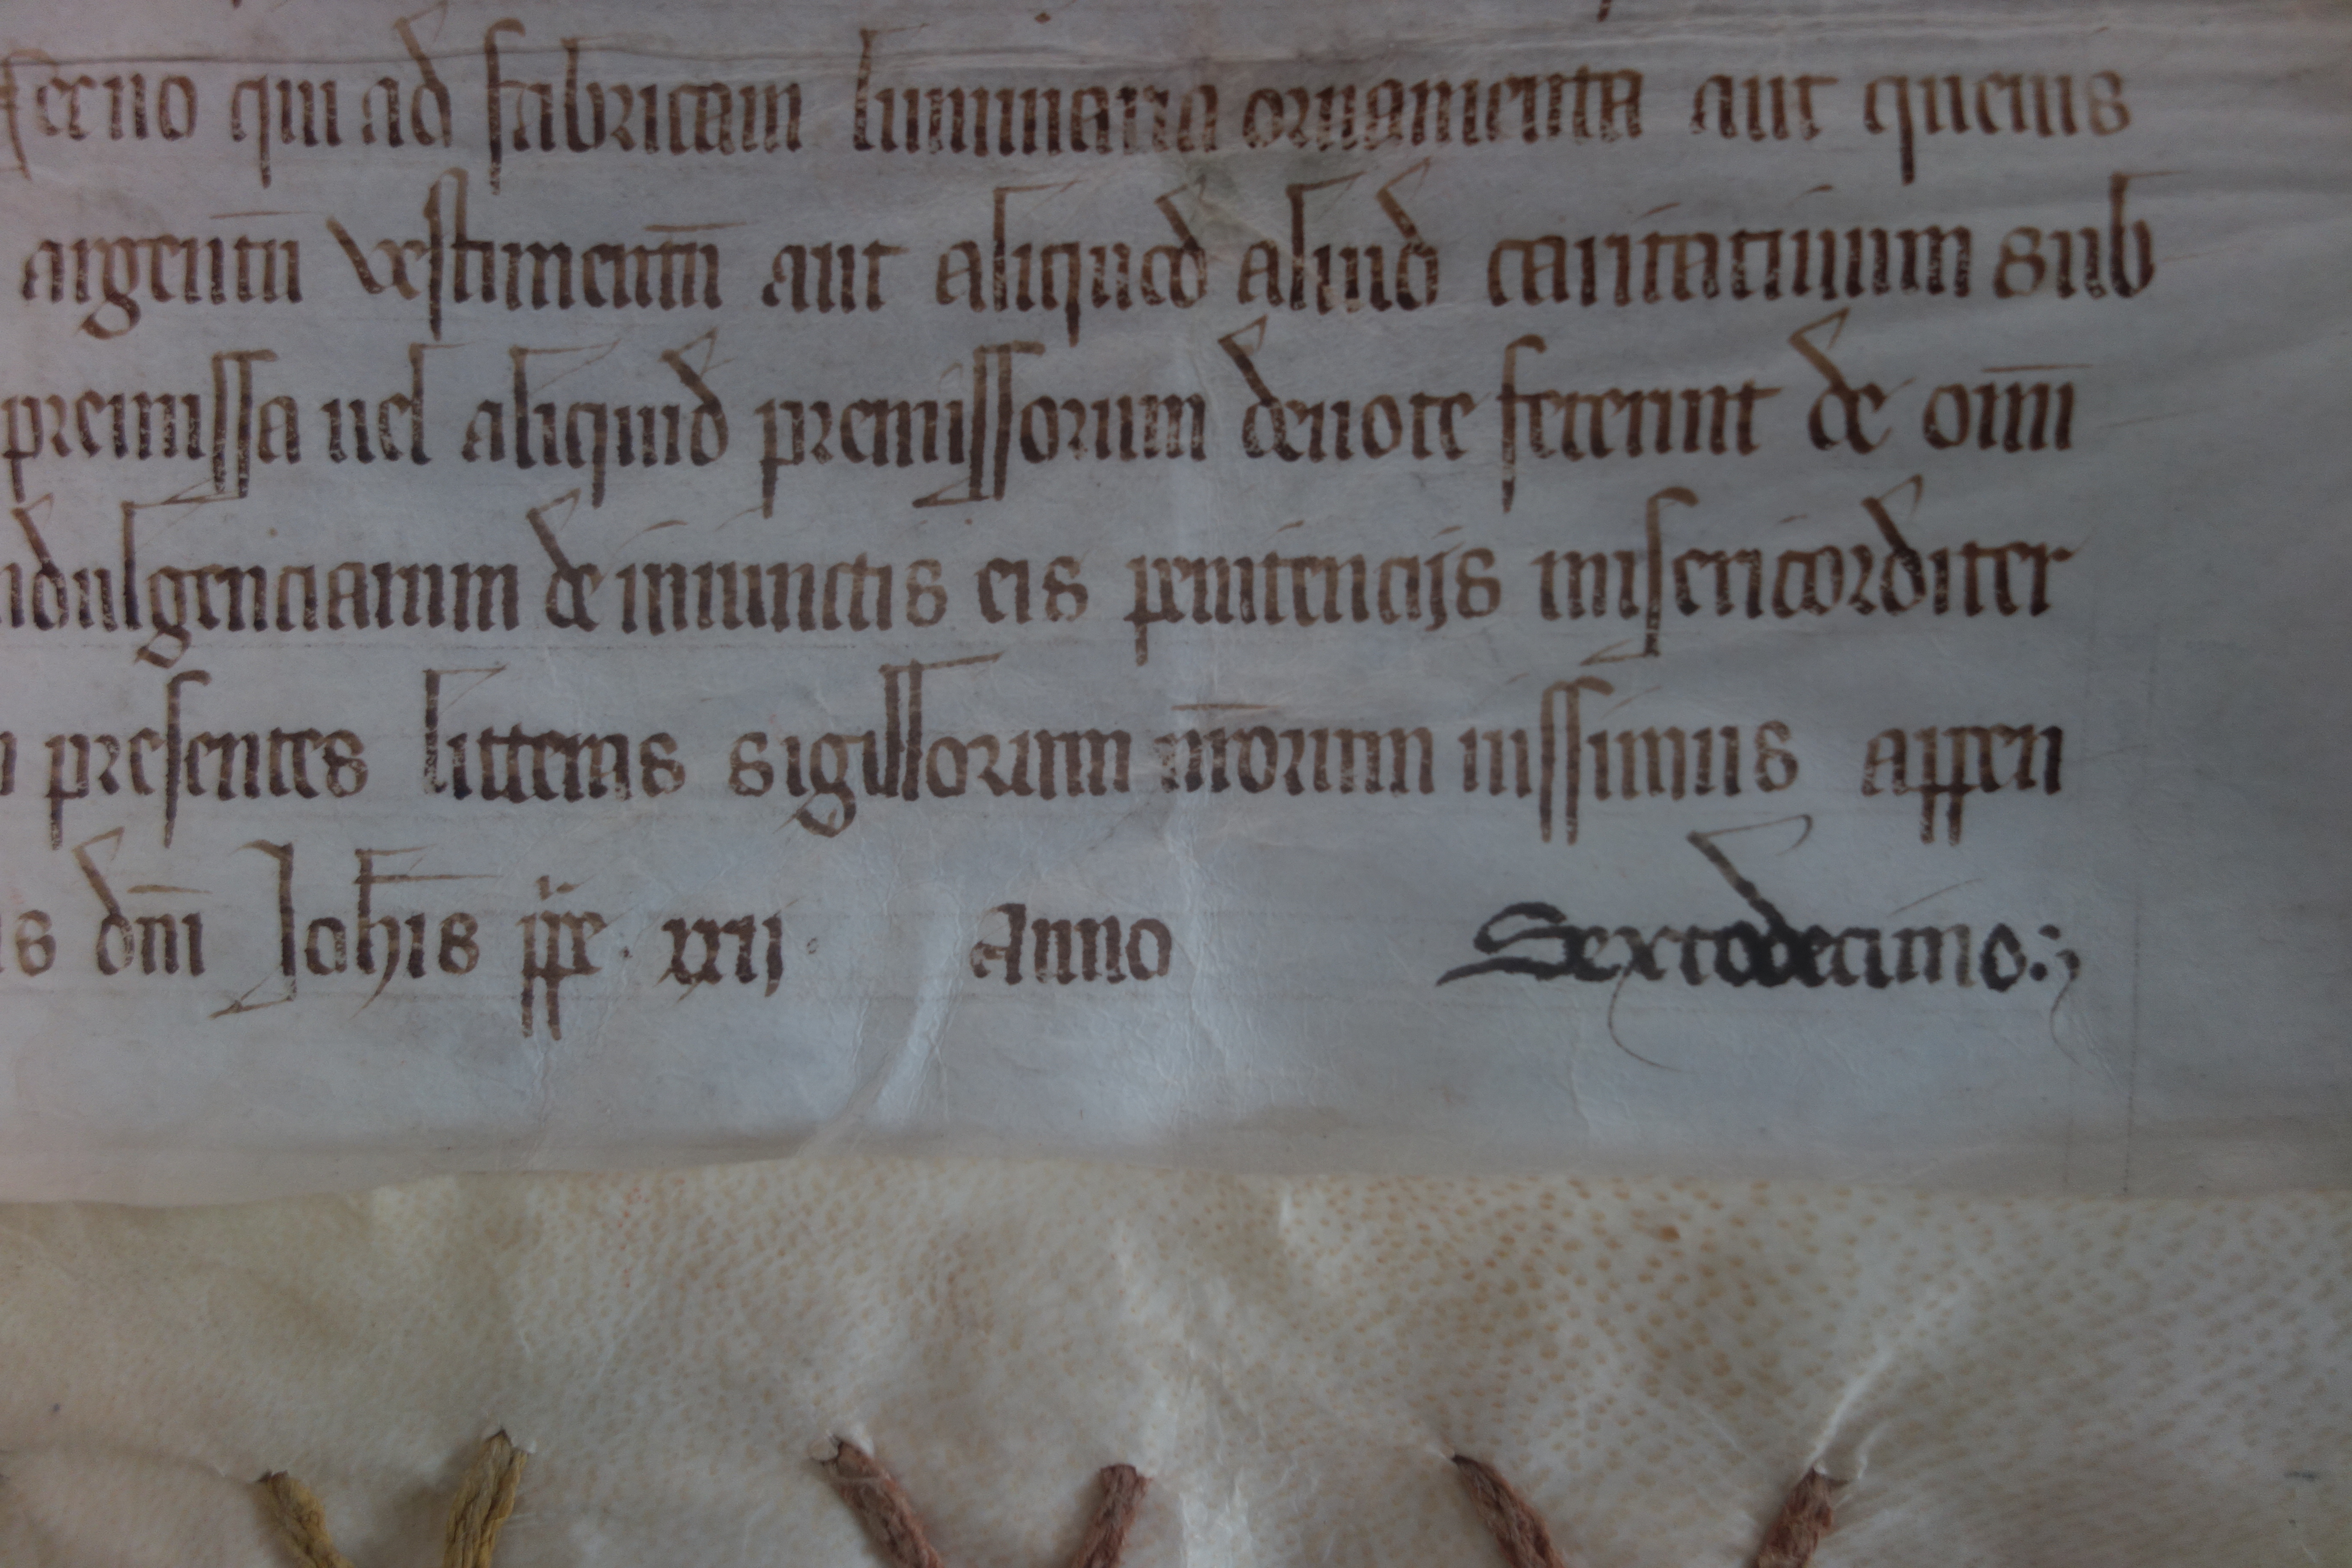 serno qui ad fabricam luminaria ornamenta aut queuis
argentū vestimentū aut aliquod aliud caritatiuum sub
premissa uel aliquid premissorum deuote fecerint de oīm
ndulgenciarum de iniunctis eis penitencijs misericorditer
presentes litteras sigillorum nr̄orum iussimus appen
is dn̄i Joh̄is pp̄e · xxij · Anno Sextodecimo :